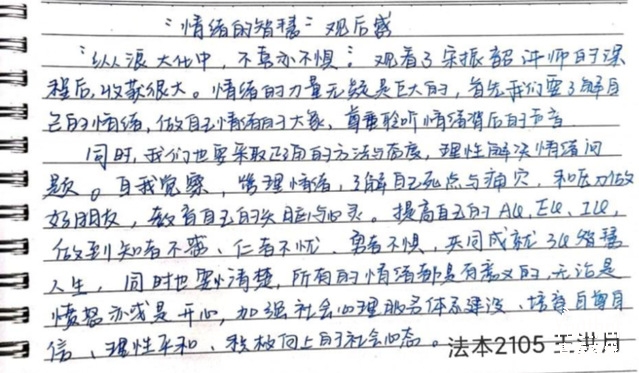 “情绪的智慧”观后感
“纵浪大化中，不喜亦不惧”，观看了宋振韶讲师的课
程后，收获很大。情绪的力量无疑是巨大的，首先我们要了解自
己的情绪，做自己情绪的大象，尊重聆听情绪背后的声音
同时，我们也要采取正确的方法与态度，理性解决情绪问
题。自我觉察，管理情绪，了解自己死点与痛穴，和压力做
好朋友，教育自己的头脑与心灵。提高自己的AQ、EQ、IQ，
做到知者不惑、仁者不忧、勇者不惧，共同成就3Q智慧
人生，同时也要清楚，所有的情绪都是有意义的，无论是
愤怒亦或是开心，加强社会心理服务体系建设、培育自尊自
信、理性平和、积极向上的社会心态。
法本2105